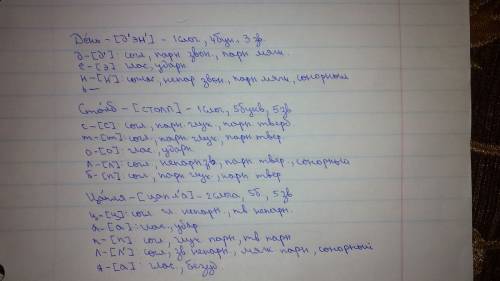 День - [д'эн'] - 1слог, 4бук. 3 зв.
д - [д']: согл, парн звон, парн мяг.
е - [э] глас, ударн
н - [н'] соглас, непар звон, парн мяг, сонорный
ь —
Столб - [столп] - 1слог, 5букв, 5зв
с - [с] согл, парн глух, парн твер
т - [т] согл, парн глух, парн твер
о - [о] глас, ударн
л - [л] согл, непарн зв, парн твер, сонорный
б - [п] согл, парн глух, парн твер
Цапля - [цапл'а] - 2слога, 5б, 5зв
ц - [ц]: согл гл. непарн, тв непарн.
а - [а]: глас, удар
п - [п] согл, глух парн, тв парн
л - [л'] согл, зв непарн, мягк парн, сонорный
я - [а]: глас, безуд